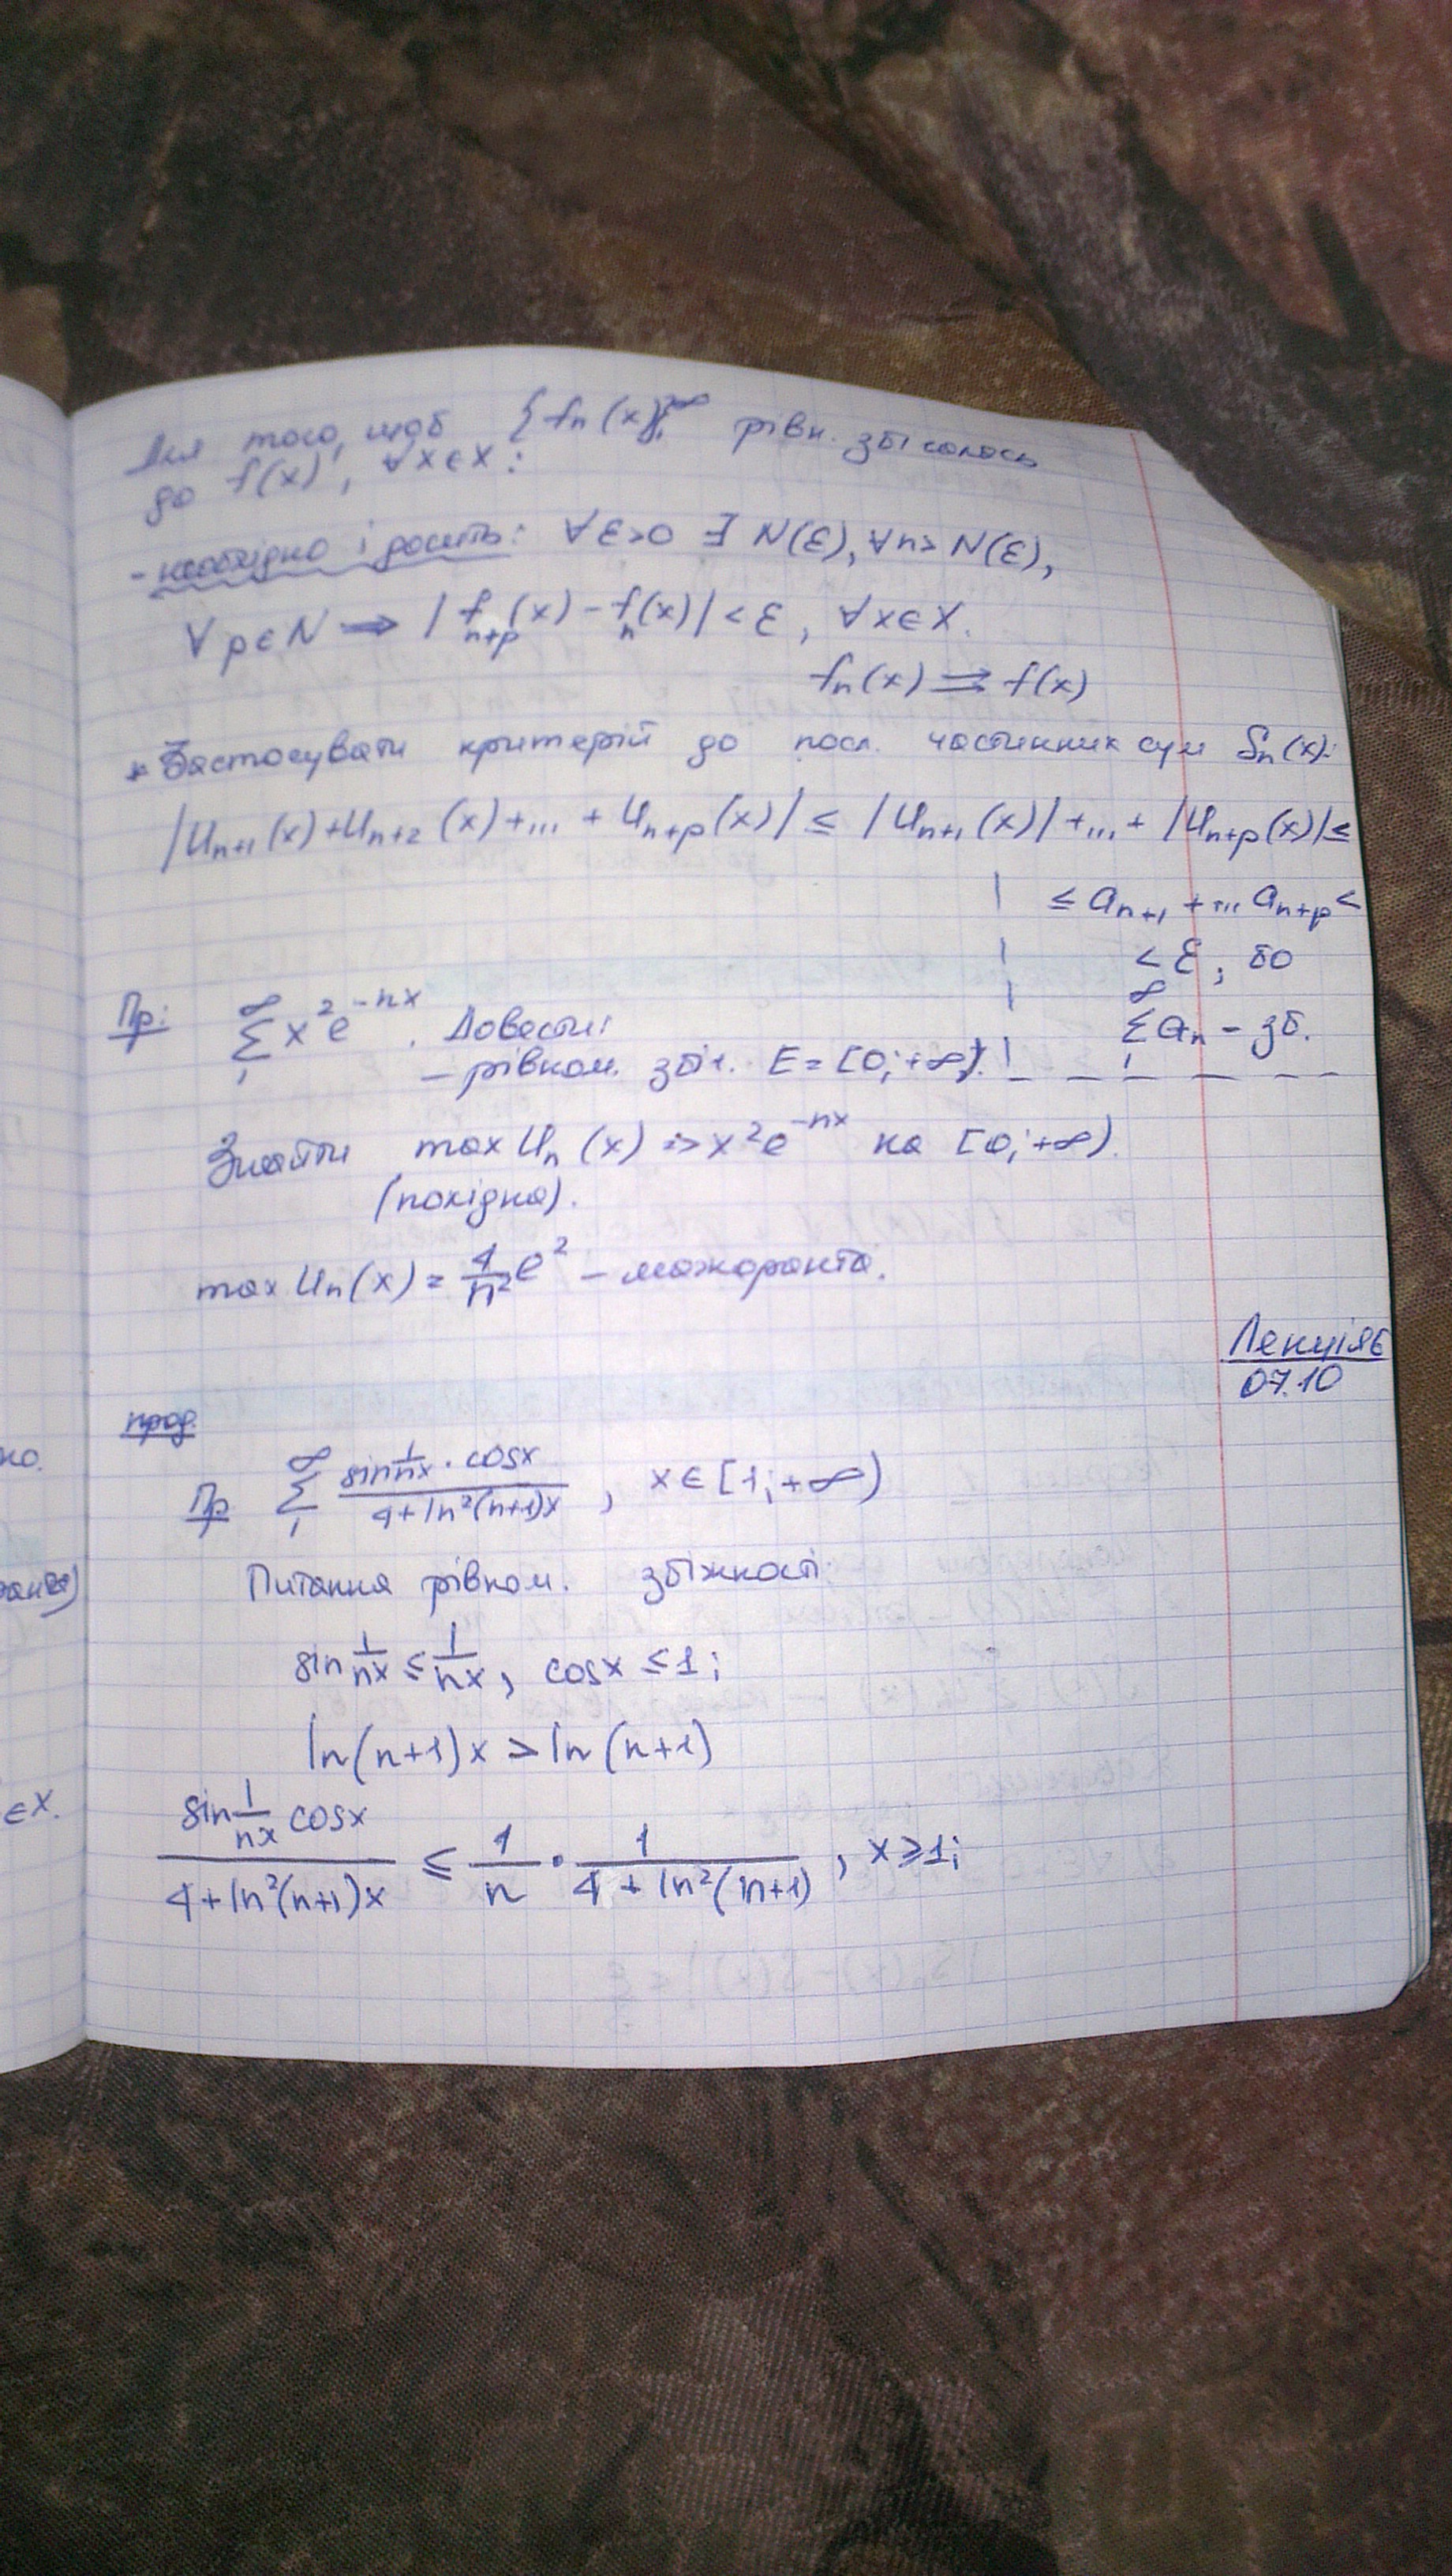 Для того, щоб {fn(x)}₁^∞ рівн. збігалось
до f(x), ∀x∈X:
- необхідно і досить: ∀ε>0 ∃ N(ε), ∀n>N(ε),
∀p∈N ⇒ |f_{n+p}(x) - f_n(x)| < ε, ∀x∈X.
fn(x) ⇉ f(x)
* Застосувати критерій до посл. частинних сум Sn(x):
|U_{n+1}(x)+U_{n+2}(x)+...+U_{n+p}(x)| ≤ |U_{n+1}(x)|+...+|U_{n+p}(x)| ≤
≤ a_{n+1}+...a_{n+p} <
< ε, бо
∑₁^∞ an - зб.
Пр: ∑₁^∞ x²e^{-nx}. Довести:
- рівном. збіг. E = [0;+∞).
Знайти max Un(x) => x²e^{-nx} на [0;+∞).
(похідна).
max Un(x) = 4/n² e² - мажоранта.
Лекція6
07.10
прод.
Пр ∑₁^∞ (sin 1/nx · cosx)/(4+ln²(n+1)x), x∈[1;+∞)
Питання рівном. збіжності
sin 1/nx ≤ 1/nx, cosx ≤ 1;
ln(n+1)x > ln(n+1)
(sin 1/nx cosx)/(4+ln²(n+1)x) ≤ 1/n · 1/(4+ln²(n+1)), x≥1;
но.
∈X.